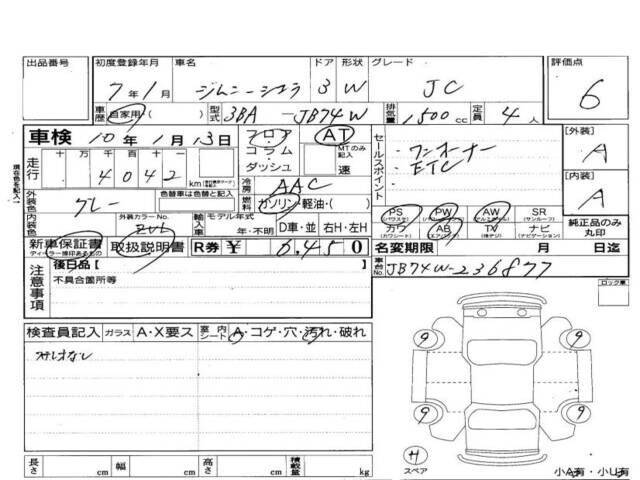 出品番号 初度登録年月 車名 ドア 形状 グレード 評価点
7年1月 ジムニーシエラ 3 W JC 6
車歴 自家用( ) 型式 3BA-JB74W 排気量 1500cc 定員 4人
車検 10年1月13日 フロア コラム ダッシュ AT MTのみ記入 速
セールスポイント
ワンオーナー
ETC
[外装] A
[内装] A
走行 十 万 千 百 十 一
4042 km
冷房 AAC
現在色を記入
外装色 グレー 色替車は色替と記入 燃料 ガソリン・軽油・( )
内装色 外装カラーNo. ZVL 輸入車 モデル年式 年・不明 D車・並 右H・左H
PS (パワステ) PW (パワーウィンドウ) AW (アルミホイル) SR (サンルーフ)
カワ (カワシート) AB (エアバッグ) TV (純テレビ) ナビ (ナビゲーション)
純正品のみ丸印
新車保証書 ディーラー捺印あるもの 取扱説明書 R券 ¥ 6,450
名変期限 月 日迄
車台No. JB74W-236877
注意事項 後日品 [ ]
不具合箇所等
ロック車
検査員記入 ガラス A・X要ス 室内シート A・コゲ・穴・汚れ・破れ
9 9
9 9
H
スペア
長さ cm 幅 cm 高さ cm 積載量 kg
小A有・小U有